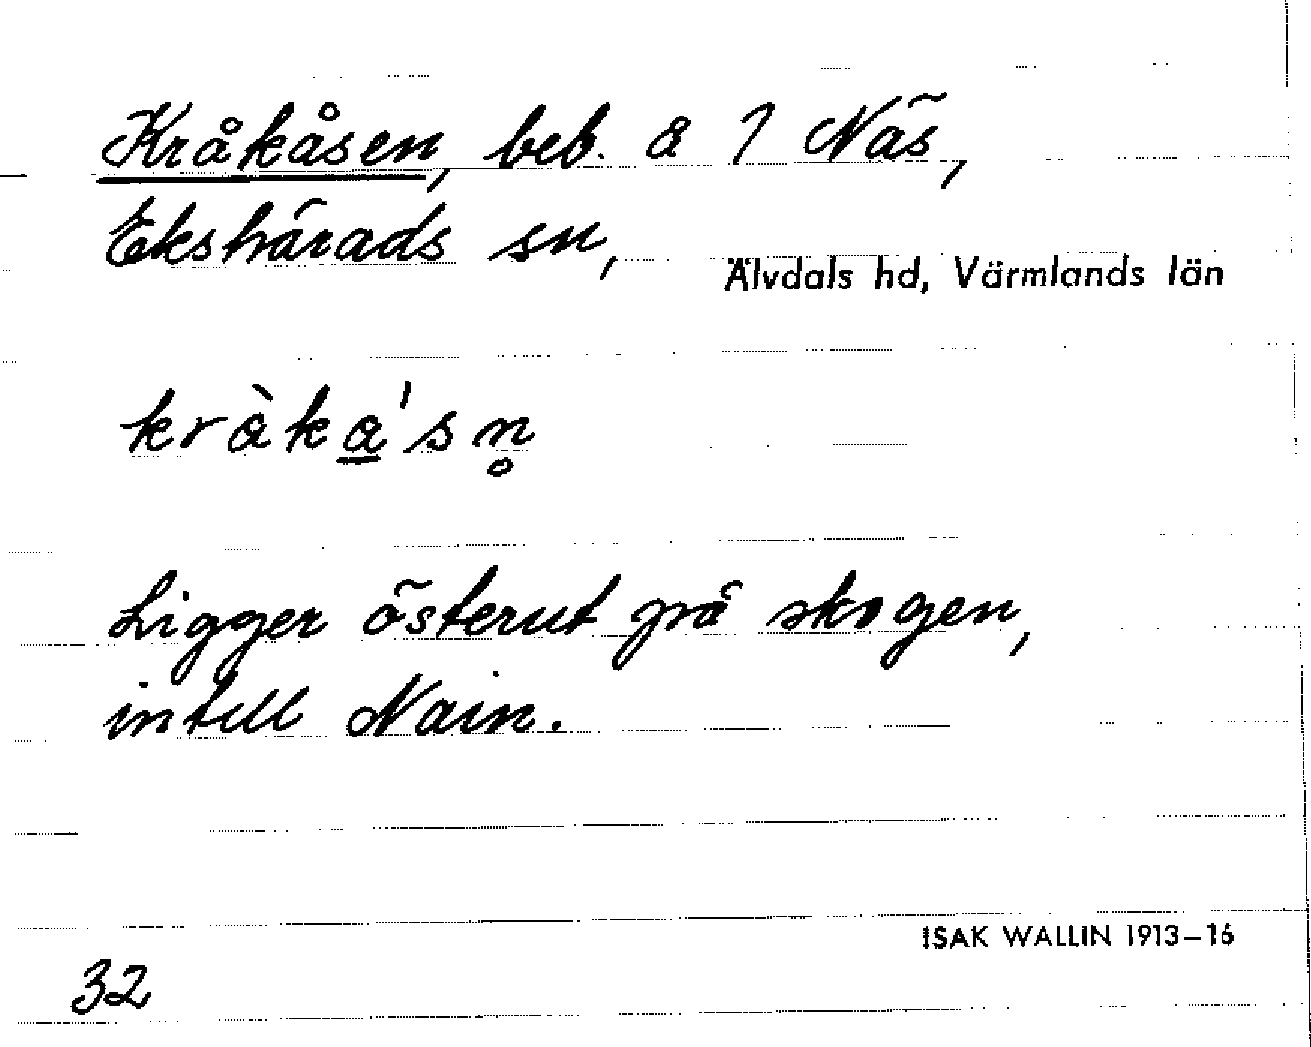 Kråkåsen, beb. å 1 Näs,
Ekshärads sn, Älvdals hd, Värmlands län
kràka̲'sn̥
Ligger österut på skogen,
intill Nain.
ISAK WALLIN 1913–16
32